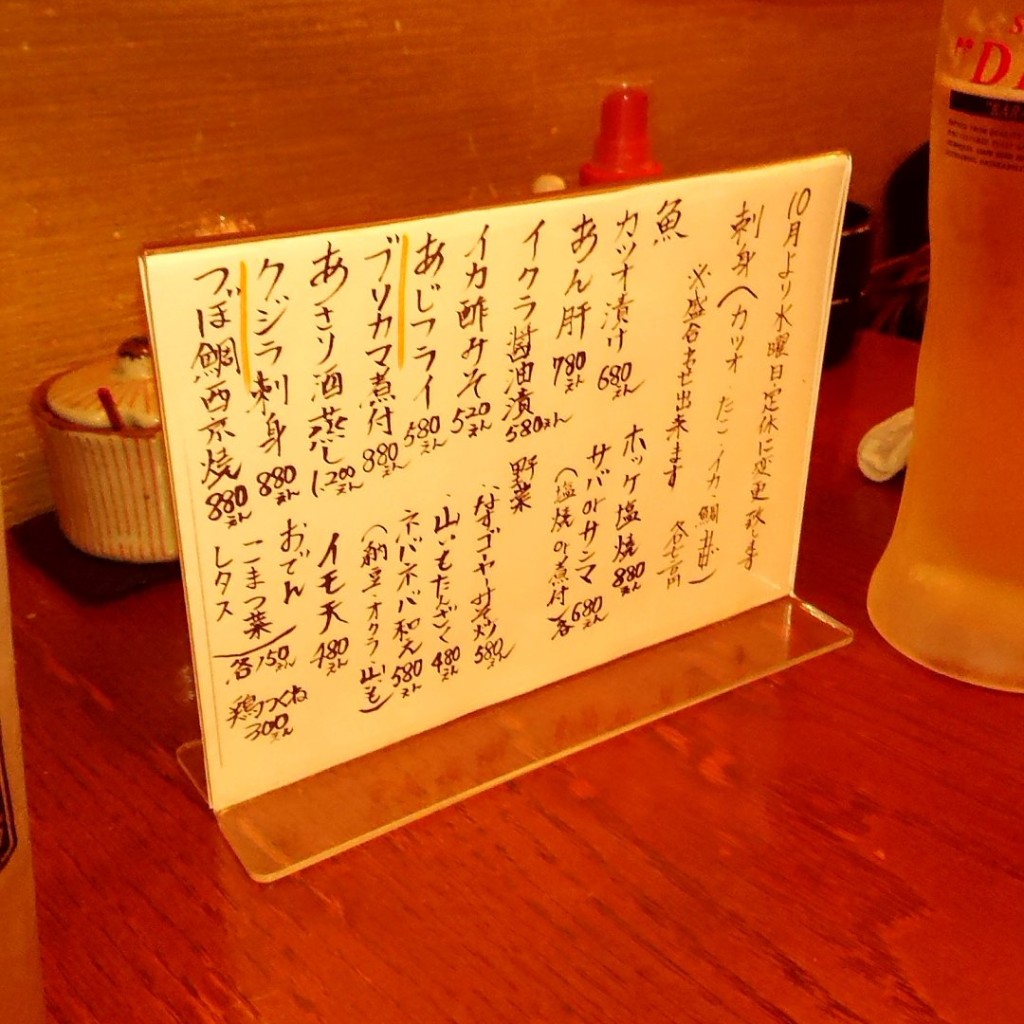 10月より水曜日定休に変更致します
刺身(カツオ・たこ・イカ・鯛
※盛合わせ出来ます
各七百円
魚
カツオ漬け 680えん
あん肝 780えん
イクラ醤油漬 580えん
イカ酢みそ 520えん
あじフライ 580えん
ブリカマ煮付 880えん
あさり酒蒸し 1,200えん
クジラ刺身 880えん
つぼ鯛西京焼 880えん
ホッケ塩焼 880えん
サバorサンマ
(塩焼or煮付)各680えん
野菜
なすゴーヤーみそ炒 580えん
山いもたんざく 480えん
ネバネバ和え 580えん
(納豆・オクラ・山いも)
イモ天 480えん
おでん
こまつ菜
レタス
各150えん
鶏つくね 300えん
"D